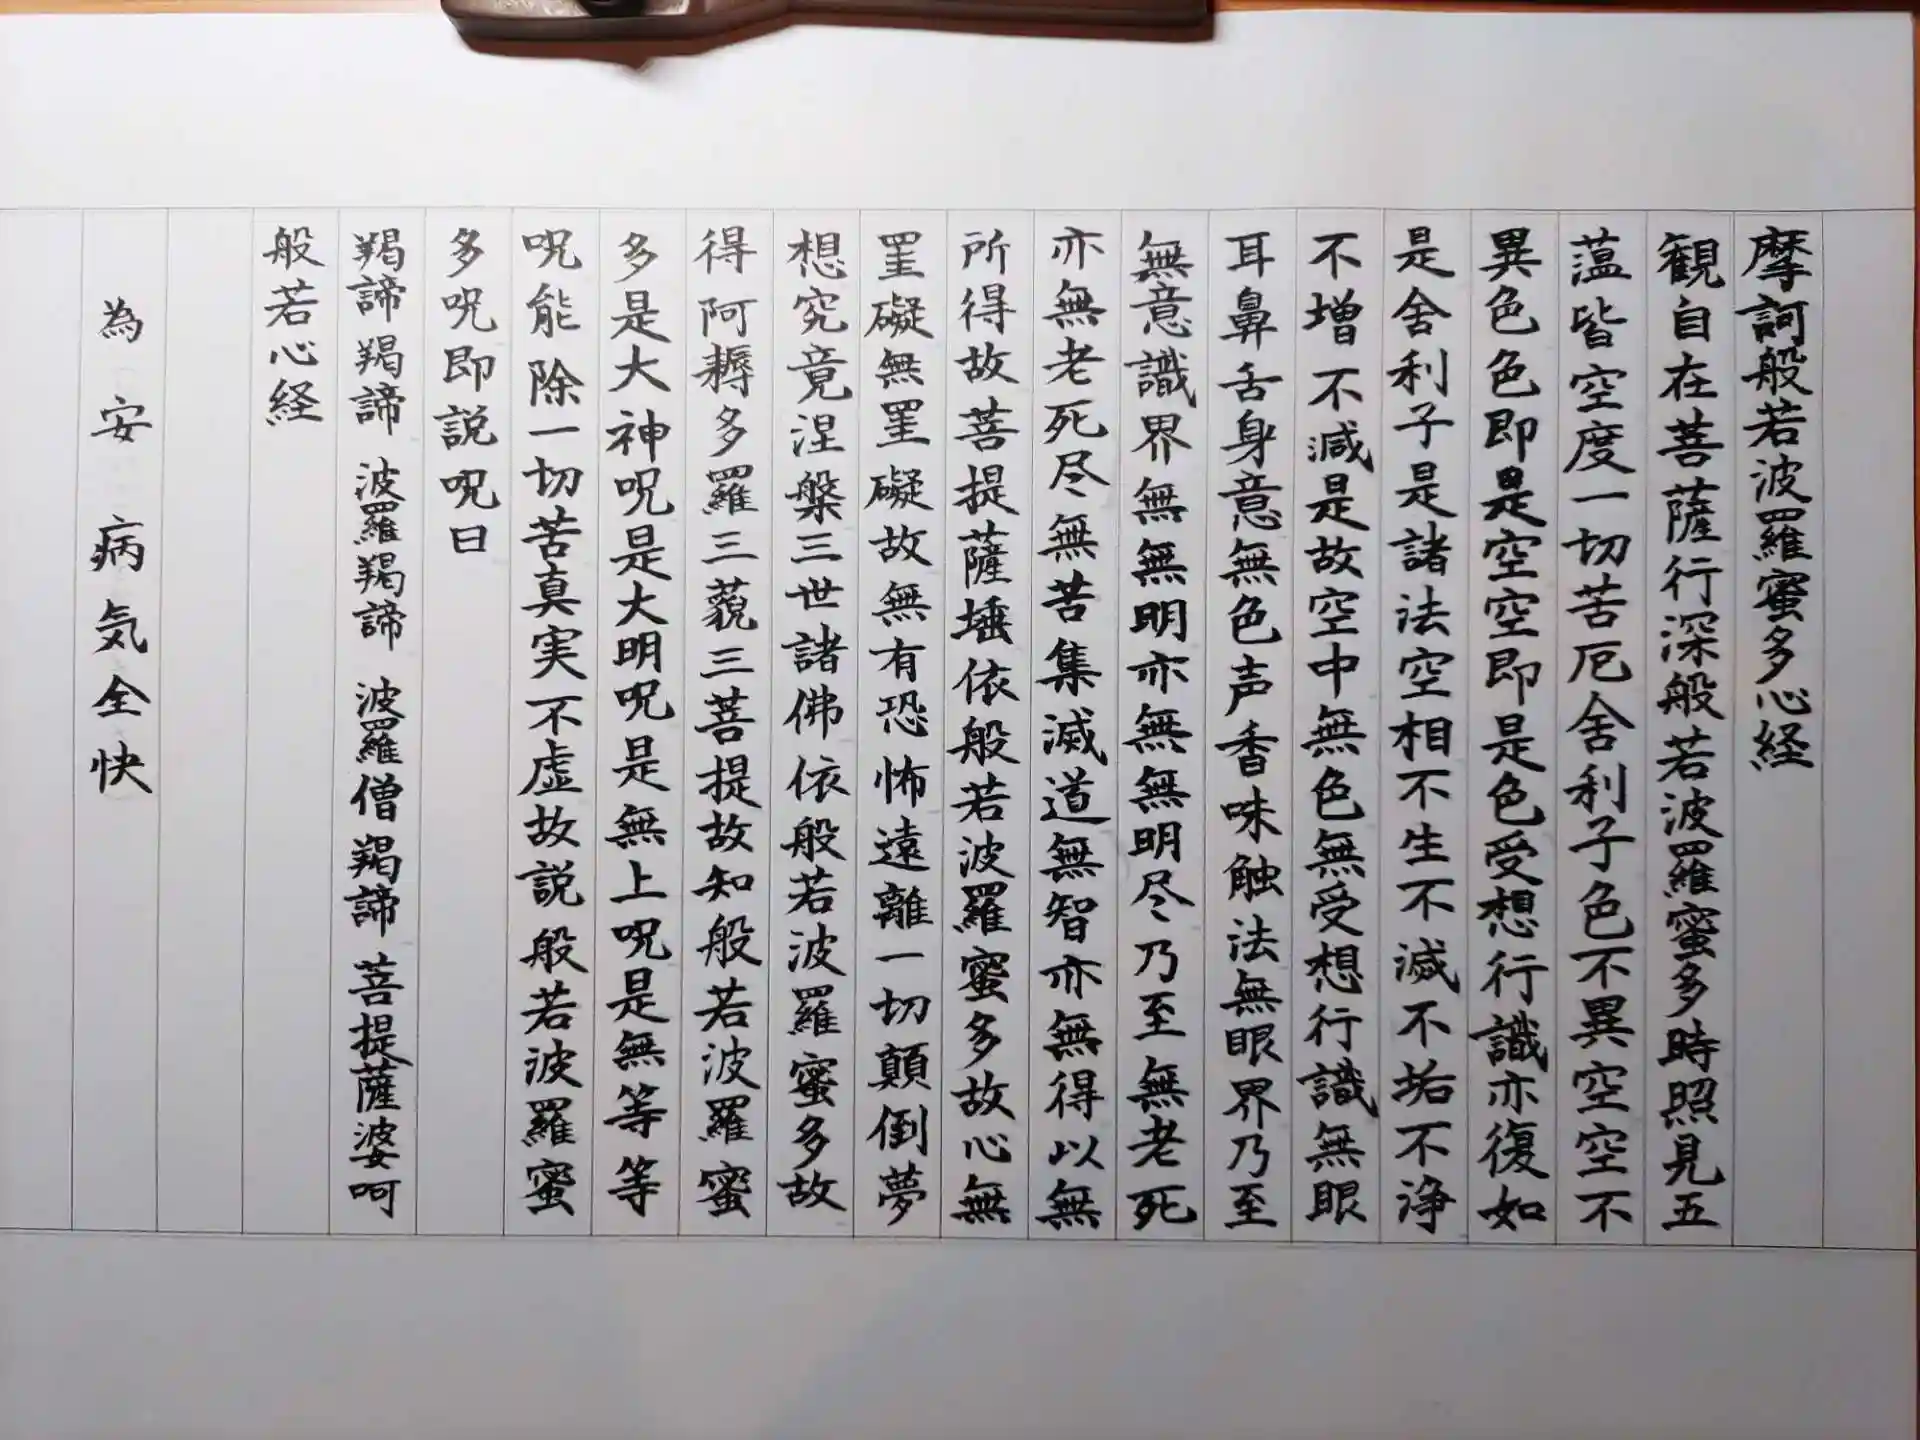 摩訶般若波羅蜜多心経
観自在菩薩行深般若波羅蜜多時照見五
薀皆空度一切苦厄舎利子色不異空空不
異色色即是空空即是色受想行識亦復如
是舎利子是諸法空相不生不滅不垢不浄
不増不減是故空中無色無受想行識無眼
耳鼻舌身意無色声香味触法無眼界乃至
無意識界無無明亦無無明尽乃至無老死
亦無老死尽無苦集滅道無智亦無得以無
所得故菩提薩埵依般若波羅蜜多故心無
罣礙無罣礙故無有恐怖遠離一切顛倒夢
想究竟涅槃三世諸佛依般若波羅蜜多故
得阿耨多羅三藐三菩提故知般若波羅蜜
多是大神呪是大明呪是無上呪是無等等
呪能除一切苦真実不虚故説般若波羅蜜
多呪即説呪曰
羯諦羯諦 波羅羯諦 波羅僧羯諦 菩提薩婆呵
般若心経
為 安 病気全快